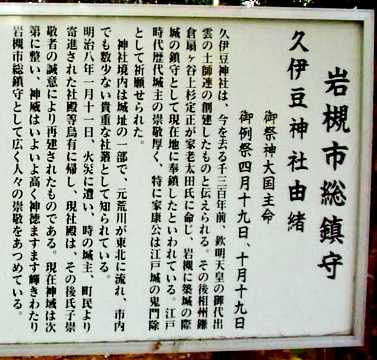 岩槻市総鎮守
久伊豆神社由緒
御祭神大国主命
御例祭四月十九日、十月十九日
久伊豆神社は、今を去る千三百年前、欽明天皇の御代出
雲の土師連の創建したものと伝えられる。その後相州鎌
倉扇ヶ谷上杉定正が家老太田氏に命じ、岩槻に築城の際
城の鎮守として現在地に奉鎮したといわれている。江戸
時代歴代城主の崇敬厚く、特に家康公は江戸城の鬼門除
として祈願せられた。
神社境内は城址の一部で、元荒川が東北に流れ、市内
でも数少ない貴重な社叢として知られている。
明治八年一月十一日、火災に遭い、時の城主、町民より
寄進された社殿等烏有に帰し、現社殿は、その後氏子崇
敬者の誠意により再建されたものである。現在神域は次
第に整い、神威はいよいよ高く神徳ますます輝きわたり
岩槻市総鎮守として広く人々の崇敬をあつめている。